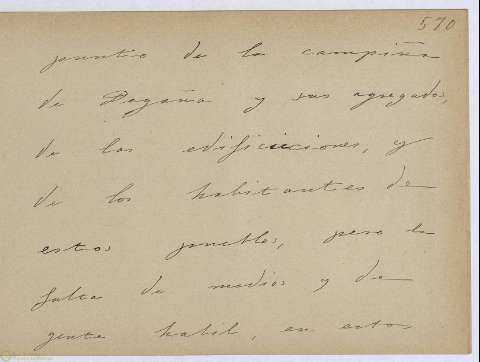 570
puntio de la campiña
de Pegaña y sus agregados,
de las edificiuciones, y
de los habitantes de
estos pueblos, pero la
falta de medios y de
gente habil, en estos